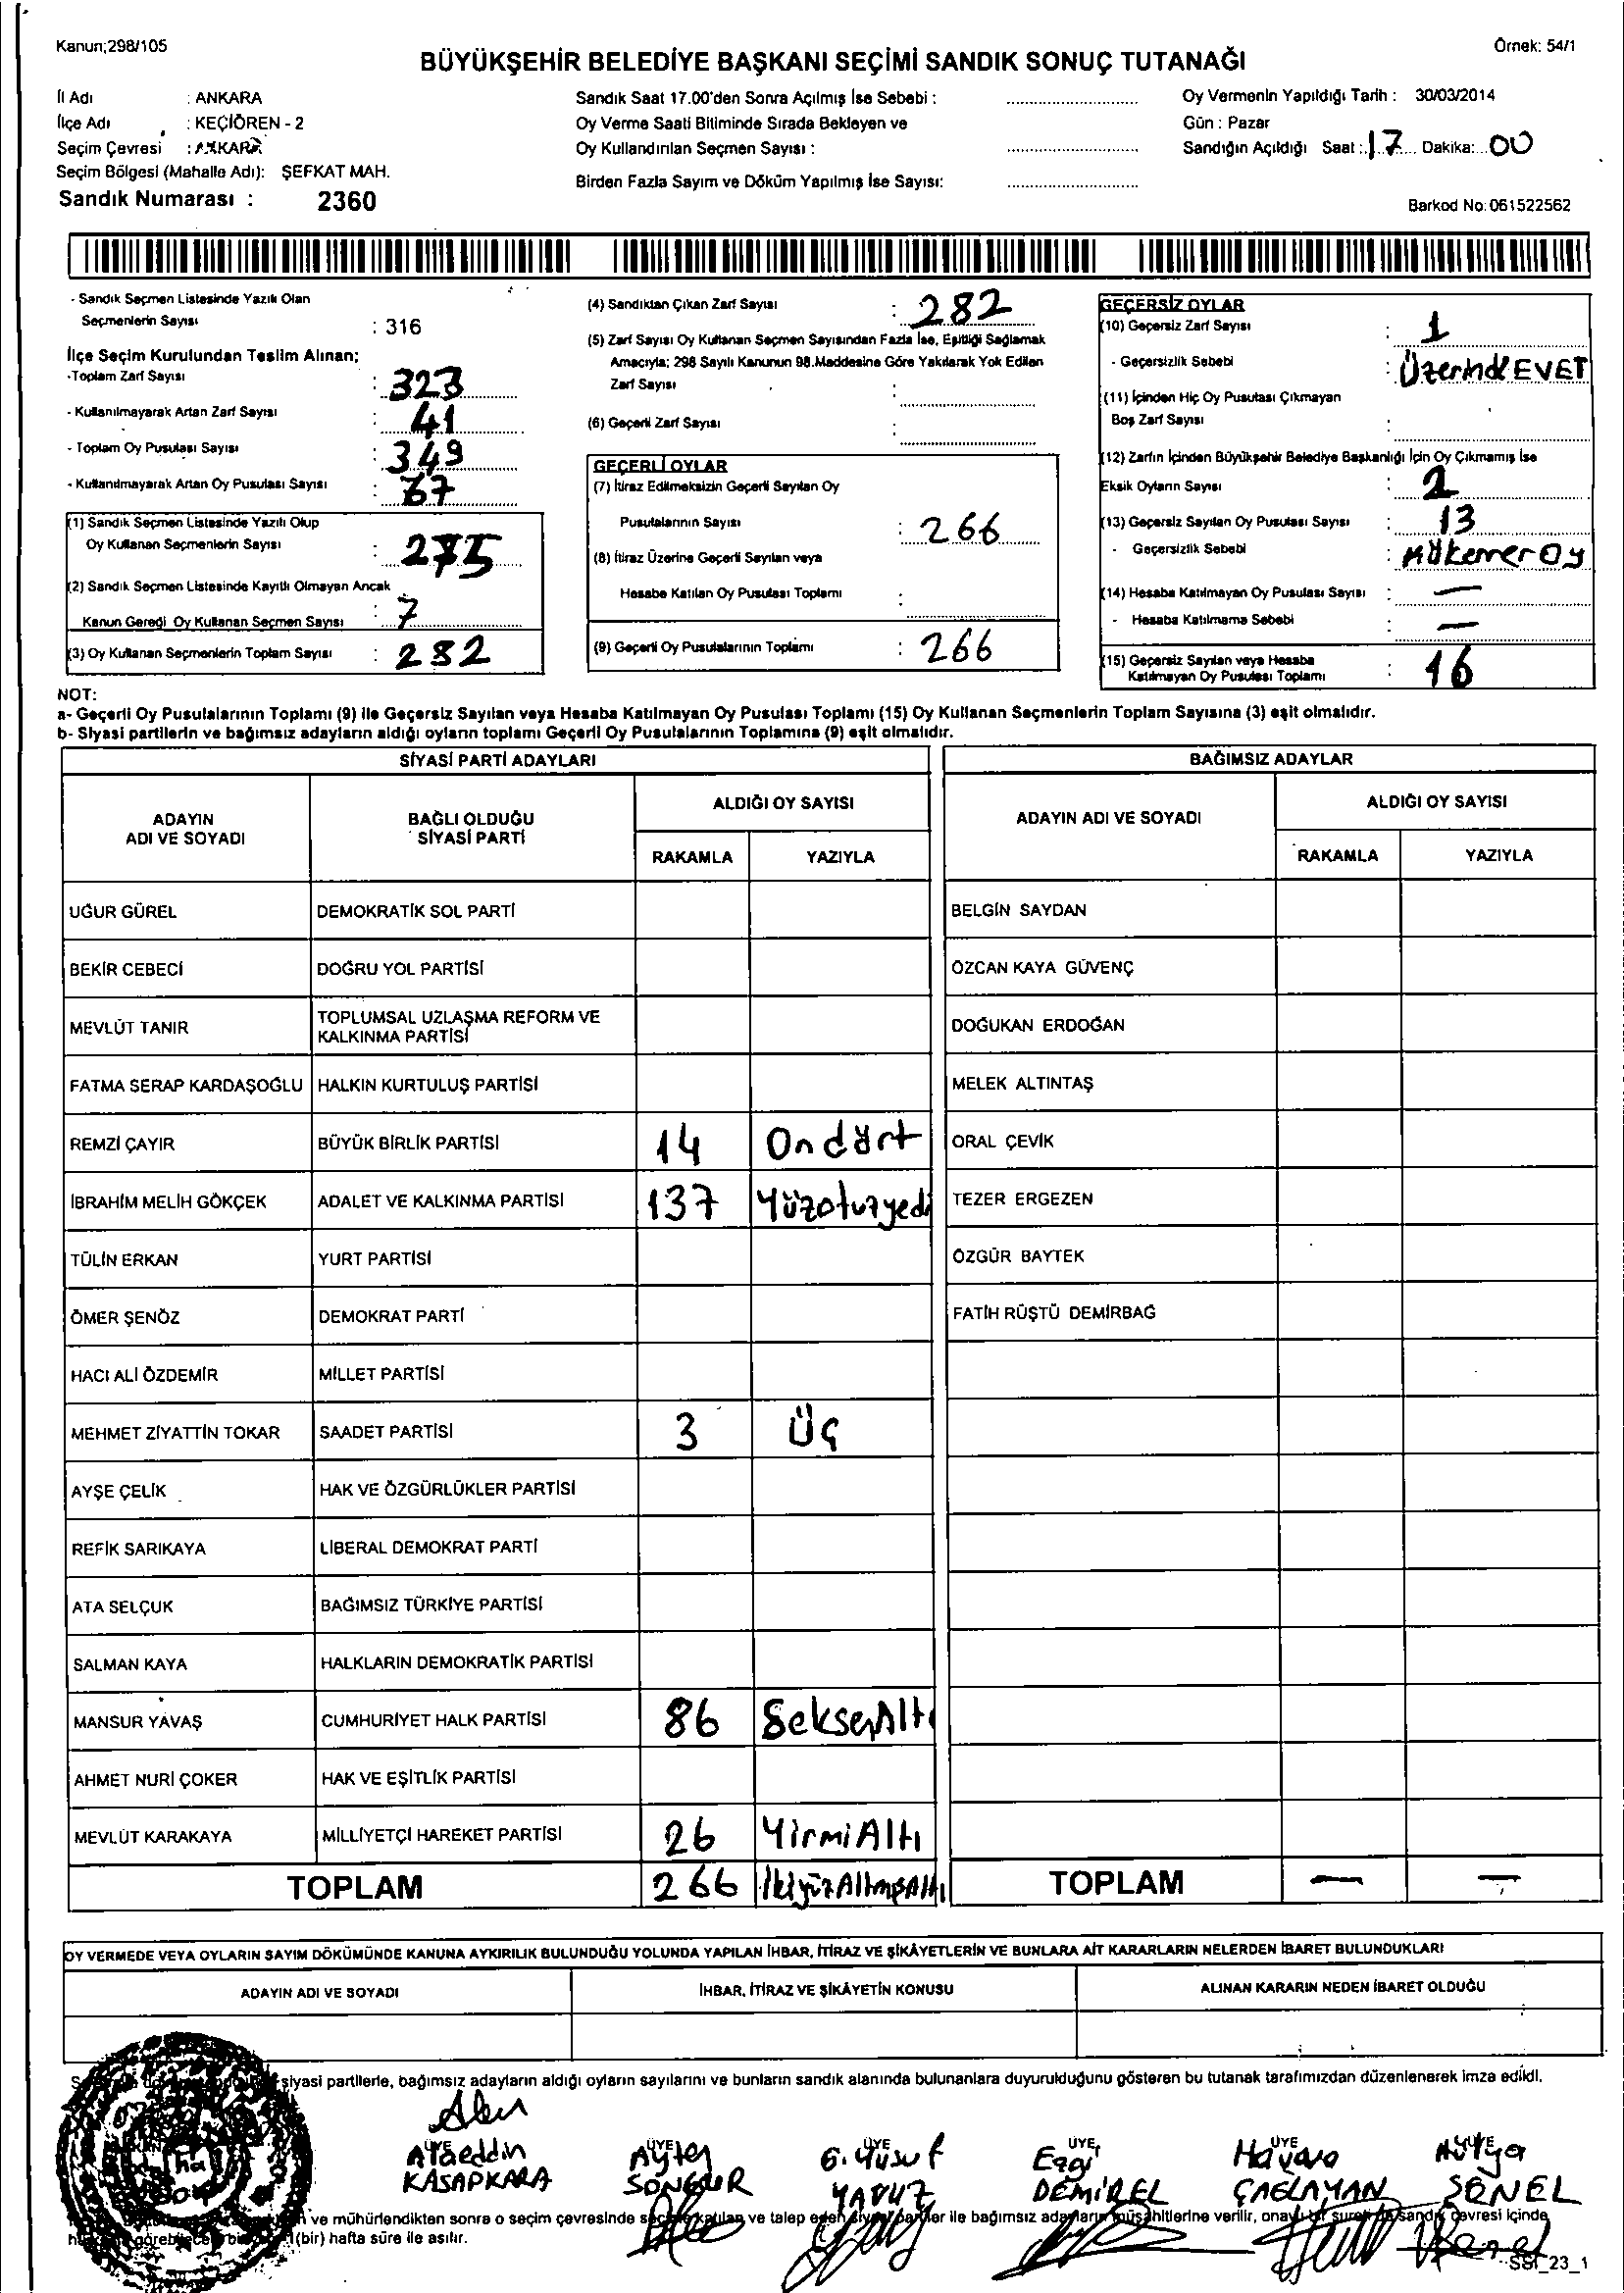 Kanun;298/105
Örnek: 54/1
BÜYÜKŞEHİR BELEDİYE BAŞKANI SEÇİMİ SANDIK SONUÇ TUTANAĞI
İl Adı : ANKARA
İlçe Adı : KEÇİÖREN - 2
Seçim Çevresi : ANKARA
Seçim Bölgesi (Mahalle Adı): ŞEFKAT MAH.
Sandık Numarası : 2360
Sandık Saat 17.00'den Sonra Açılmış İse Sebebi :
Oy Verme Saati Bitiminde Sırada Bekleyen ve
Oy Kullandırılan Seçmen Sayısı :
Birden Fazla Sayım ve Döküm Yapılmış İse Sayısı:
Oy Vermenin Yapıldığı Tarih : 30/03/2014
Gün : Pazar
Sandığın Açıldığı Saat : 17 Dakika: 00
Barkod No: 061522562
- Sandık Seçmen Listesinde Yazılı Olan
Seçmenlerin Sayısı : 316
İlçe Seçim Kurulundan Teslim Alınan;
-Toplam Zarf Sayısı : 323
- Kullanılmayarak Artan Zarf Sayısı : 41
- Toplam Oy Pusulası Sayısı : 349
- Kullanılmayarak Artan Oy Pusulası Sayısı : 67
(1) Sandık Seçmen Listesinde Yazılı Olup
Oy Kullanan Seçmenlerin Sayısı : 275
(2) Sandık Seçmen Listesinde Kayıtlı Olmayan Ancak
Kanun Gereği Oy Kullanan Seçmen Sayısı : 7
(3) Oy Kullanan Seçmenlerin Toplam Sayısı : 282
(4) Sandıktan Çıkan Zarf Sayısı : 282
(5) Zarf Sayısı Oy Kullanan Seçmen Sayısından Fazla İse, Eşitliği Sağlamak
Amacıyla; 298 Sayılı Kanunun 98.Maddesine Göre Yakılarak Yok Edilen
Zarf Sayısı :
(6) Geçerli Zarf Sayısı :
GEÇERLİ OYLAR
(7) İtiraz Edilmeksizin Geçerli Sayılan Oy
Pusulalarının Sayısı : 266
(8) İtiraz Üzerine Geçerli Sayılan veya
Hesaba Katılan Oy Pusulası Toplamı :
(9) Geçerli Oy Pusulalarının Toplamı : 266
GEÇERSİZ OYLAR
(10) Geçersiz Zarf Sayısı : 1
- Geçersizlik Sebebi : Üzerinde EVET
(11) İçinden Hiç Oy Pusulası Çıkmayan
Boş Zarf Sayısı :
(12) Zarfın İçinden Büyükşehir Belediye Başkanlığı İçin Oy Çıkmamış İse
Eksik Oyların Sayısı : 2
(13) Geçersiz Sayılan Oy Pusulası Sayısı : 13
- Geçersizlik Sebebi : Mükerrer Oy
(14) Hesaba Katılmayan Oy Pusulası Sayısı : —
- Hesaba Katılmama Sebebi : —
(15) Geçersiz Sayılan veya Hesaba
Katılmayan Oy Pusulası Toplamı : 16
NOT:
a- Geçerli Oy Pusulalarının Toplamı (9) ile Geçersiz Sayılan veya Hesaba Katılmayan Oy Pusulası Toplamı (15) Oy Kullanan Seçmenlerin Toplam Sayısına (3) eşit olmalıdır.
b- Siyasi partilerin ve bağımsız adayların aldığı oyların toplamı Geçerli Oy Pusulalarının Toplamına (9) eşit olmalıdır.
SİYASİ PARTİ ADAYLARI
BAĞIMSIZ ADAYLAR
ADAYIN ADI VE SOYADI
BAĞLI OLDUĞU SİYASİ PARTİ
ALDIĞI OY SAYISI
RAKAMLA YAZIYLA
ADAYIN ADI VE SOYADI
ALDIĞI OY SAYISI
RAKAMLA YAZIYLA
UĞUR GÜREL DEMOKRATİK SOL PARTİ BELGİN SAYDAN
BEKİR CEBECİ DOĞRU YOL PARTİSİ ÖZCAN KAYA GÜVENÇ
MEVLÜT TANIR TOPLUMSAL UZLAŞMA REFORM VE KALKINMA PARTİSİ DOĞUKAN ERDOĞAN
FATMA SERAP KARDAŞOĞLU HALKIN KURTULUŞ PARTİSİ MELEK ALTINTAŞ
REMZİ ÇAYIR BÜYÜK BİRLİK PARTİSİ 14 Ondört ORAL ÇEVİK
İBRAHİM MELİH GÖKÇEK ADALET VE KALKINMA PARTİSİ 137 Yüzotuzyedi TEZER ERGEZEN
TÜLİN ERKAN YURT PARTİSİ ÖZGÜR BAYTEK
ÖMER ŞENÖZ DEMOKRAT PARTİ FATİH RÜŞTÜ DEMİRBAĞ
HACI ALİ ÖZDEMİR MİLLET PARTİSİ
MEHMET ZİYATTİN TOKAR SAADET PARTİSİ 3 Üç
AYŞE ÇELİK HAK VE ÖZGÜRLÜKLER PARTİSİ
REFİK SARIKAYA LİBERAL DEMOKRAT PARTİ
ATA SELÇUK BAĞIMSIZ TÜRKİYE PARTİSİ
SALMAN KAYA HALKLARIN DEMOKRATİK PARTİSİ
MANSUR YAVAŞ CUMHURİYET HALK PARTİSİ 86 SeksenAltı
AHMET NURİ ÇOKER HAK VE EŞİTLİK PARTİSİ
MEVLÜT KARAKAYA MİLLİYETÇİ HAREKET PARTİSİ 26 YirmiAltı
TOPLAM 266 İkiyüzAltmışAltı TOPLAM — —
OY VERMEDE VEYA OYLARIN SAYIM DÖKÜMÜNDE KANUNA AYKIRILIK BULUNDUĞU YOLUNDA YAPILAN İHBAR, İTİRAZ VE ŞİKÂYETLERİN VE BUNLARA AİT KARARLARIN NELERDEN İBARET BULUNDUKLARI
ADAYIN ADI VE SOYADI İHBAR, İTİRAZ VE ŞİKÂYETİN KONUSU ALINAN KARARIN NEDEN İBARET OLDUĞU
siyasi partilerle, bağımsız adayların aldığı oyların sayılarını ve bunların sandık alanında bulunanlara duyurulduğunu gösteren bu tutanak tarafımızdan düzenlenerek imza edildi.
ÜYE ÜYE ÜYE ÜYE ÜYE ÜYE
Alaeddin Ayten G. Yusuf Ezgi Havava Hülya
KASAPKARA SONGUR YAVUZ DEMİREL ÇAĞLAYAN ŞENEL
ve mühürlendikten sonra o seçim çevresinde seçime katılan ve talep eden siyasi partiler ile bağımsız adayların müşahitlerine verilir, onaylı bir sureti de sandık çevresi içinde
(bir) hafta süre ile asılır.
SSt_23_1